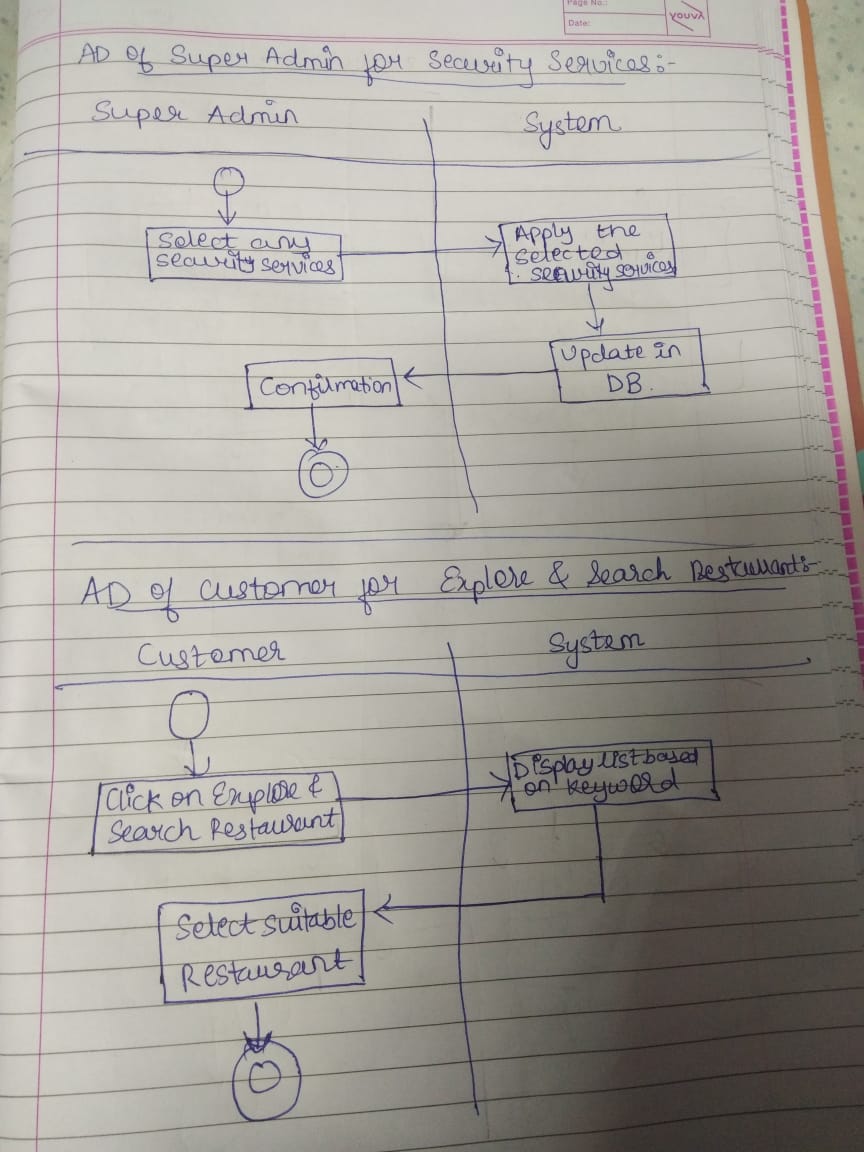 Page No.:
Date:
YOUVA
AD Of Super Admin for Security Services:-
Super Admin
System
Select any
security services
Apply the
selected
security services
Update in
DB.
Confirmation
AD of Customer for Explore & Search Restaurants:-
Customer
System
Click on Explore &
Search Restaurant
Display list based
on keyword
Select suitable
Restaurant